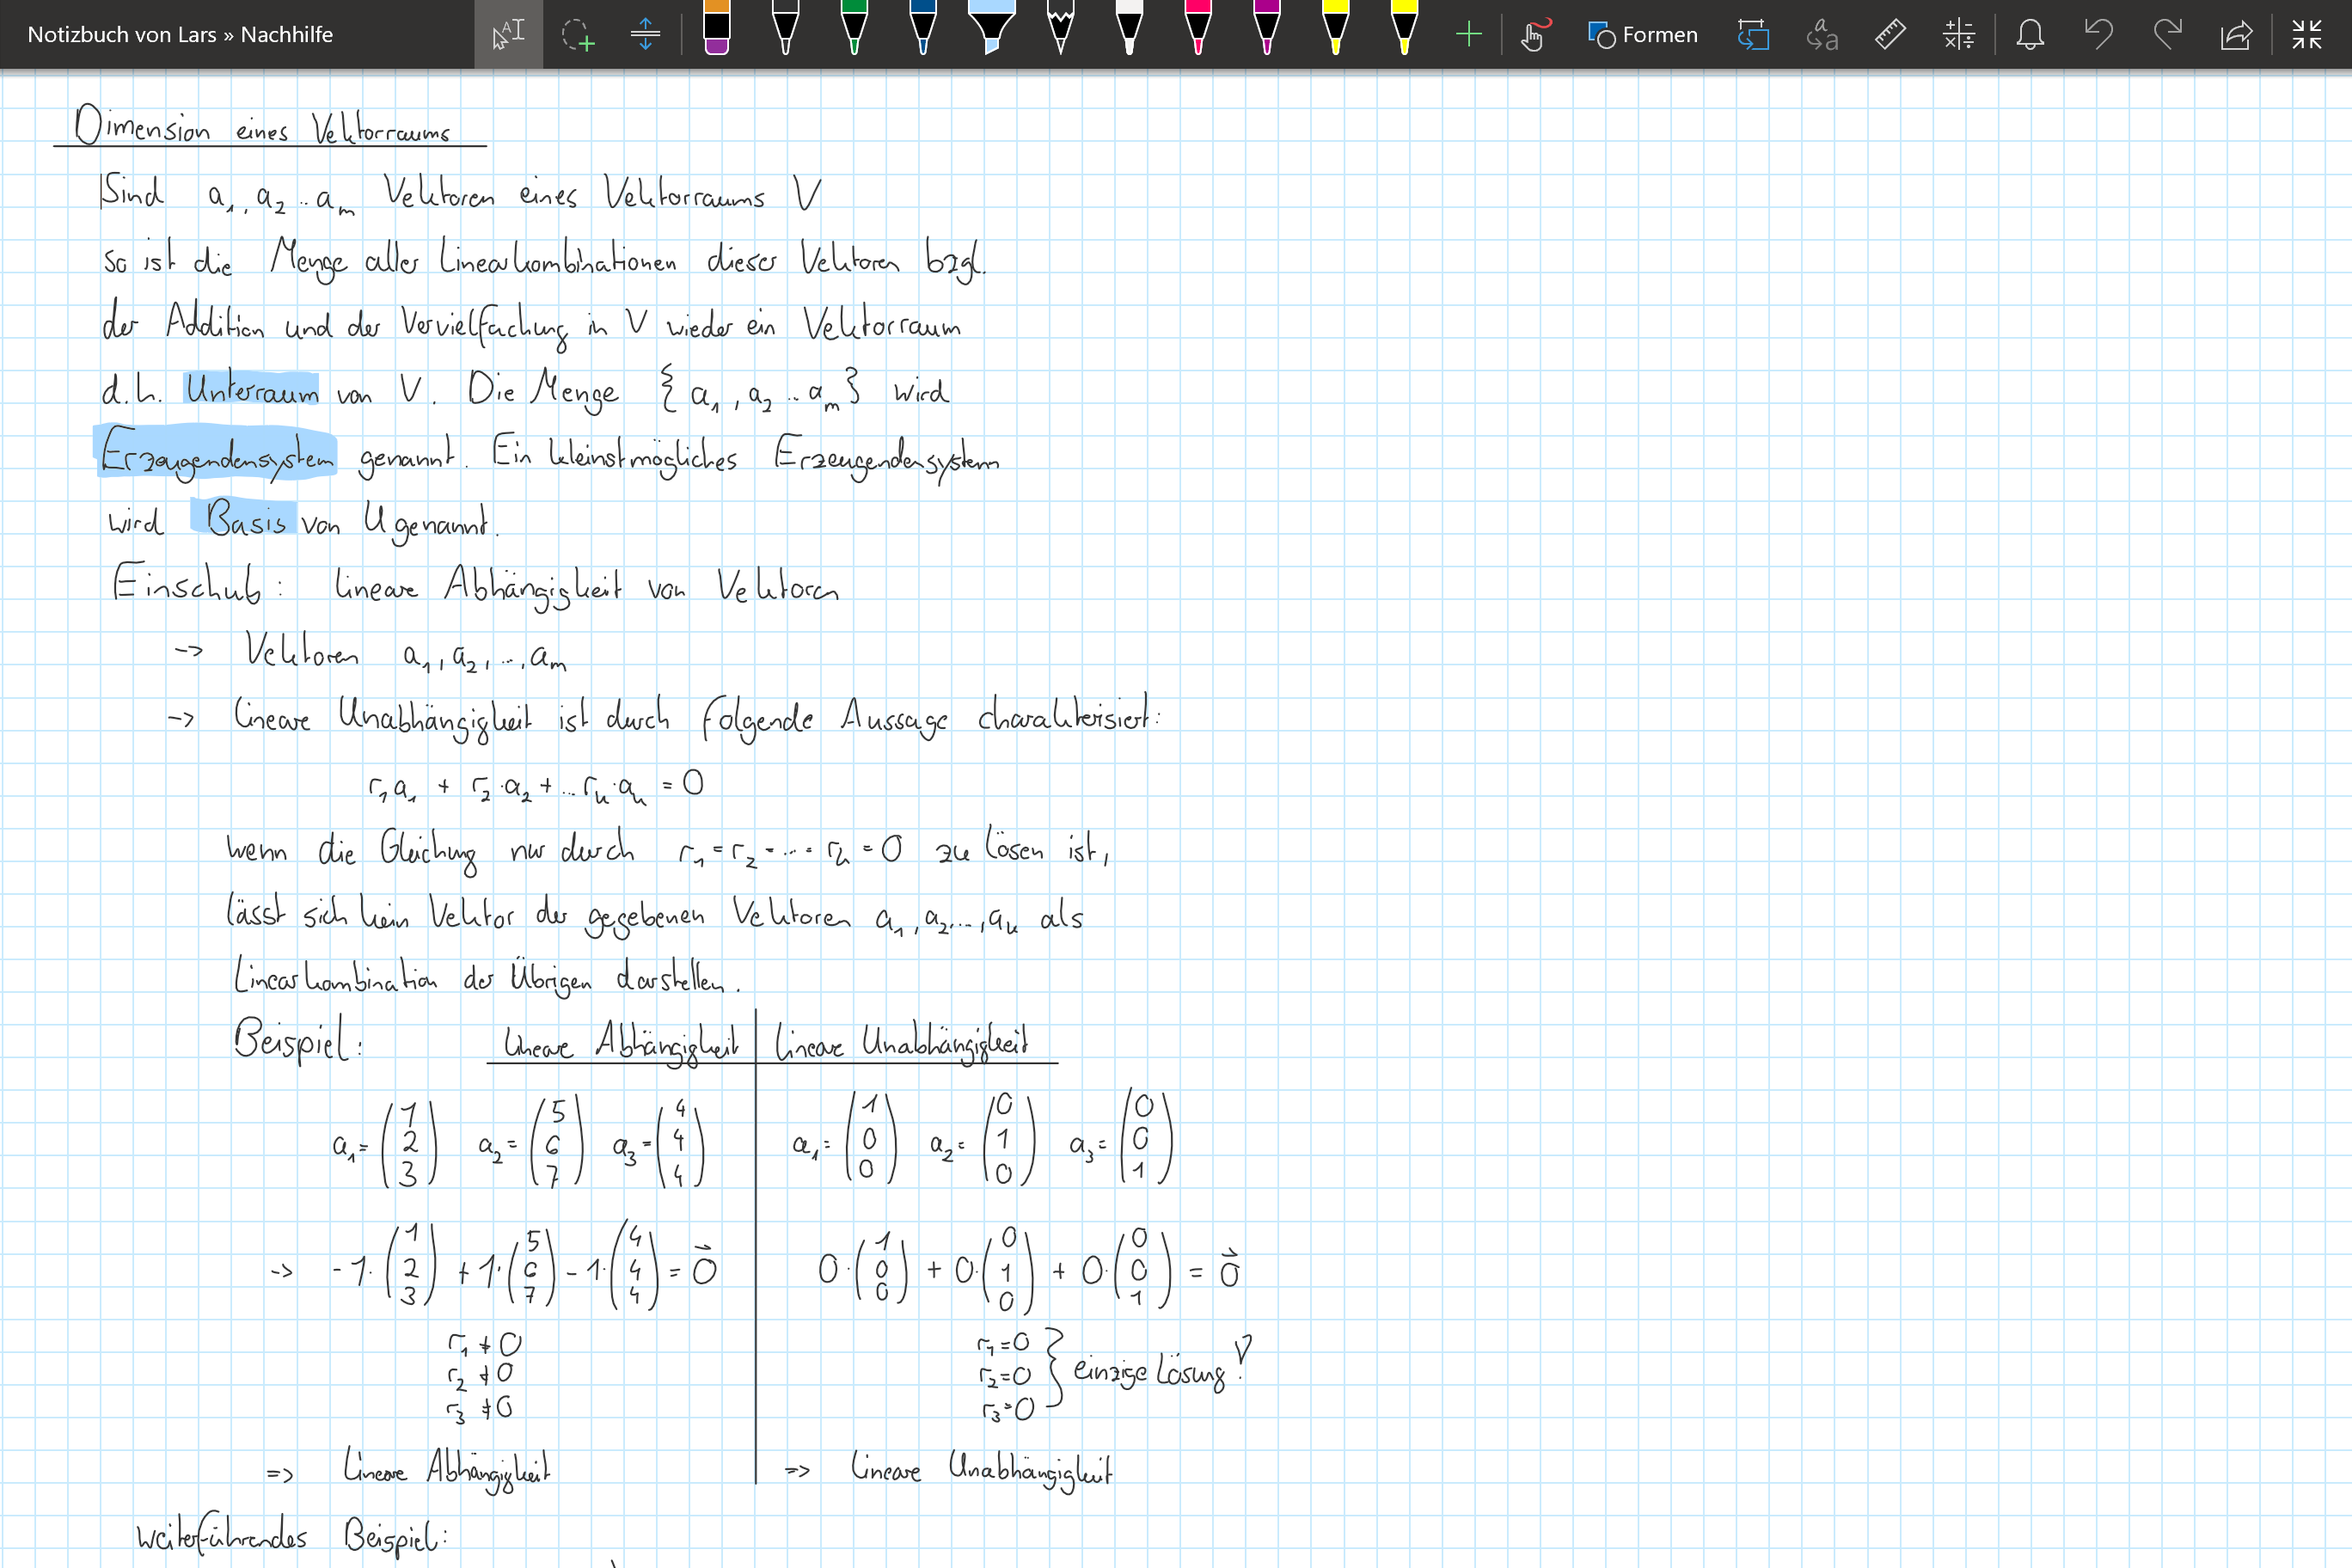 Notizbuch von Lars » Nachhilfe
Formen
Dimension eines Vektorraums
Sind a₁, a₂ .. aₘ Vektoren eines Vektorraums V
so ist die Menge aller Linearkombinationen dieser Vektoren bzgl.
der Addition und der Vervielfachung in V wieder ein Vektorraum
d.h. Unterraum von V. Die Menge { a₁, a₂ .. aₘ } wird
Erzeugendensystem genannt. Ein kleinstmögliches Erzeugendensystem
wird Basis von U genannt.
Einschub: lineare Abhängigkeit von Vektoren
-> Vektoren a₁, a₂, ..., aₘ
-> lineare Unabhängigkeit ist durch folgende Aussage charakterisiert:
r₁a₁ + r₂·a₂ + ... rₖ·aₖ = 0
wenn die Gleichung nur durch r₁ = r₂ = ... = rₖ = 0 zu lösen ist,
lässt sich kein Vektor der gegebenen Vektoren a₁, a₂, ..., aₖ als
Linearkombination der Übrigen darstellen.
Beispiel: lineare Abhängigkeit | lineare Unabhängigkeit
a₁ = (1 2 3) a₂ = (5 6 7) a₃ = (4 4 4) | a₁ = (1 0 0) a₂ = (0 1 0) a₃ = (0 0 1)
-> -1·(1 2 3) + 1·(5 6 7) - 1·(4 4 4) = 0⃗ | 0·(1 0 0) + 0·(0 1 0) + 0·(0 0 1) = 0⃗
r₁ ≠ 0 | r₁ = 0
r₂ ≠ 0 | r₂ = 0 } einzige Lösung!
r₃ ≠ 0 | r₃ = 0
=> lineare Abhängigkeit | => lineare Unabhängigkeit
weiterführendes Beispiel: